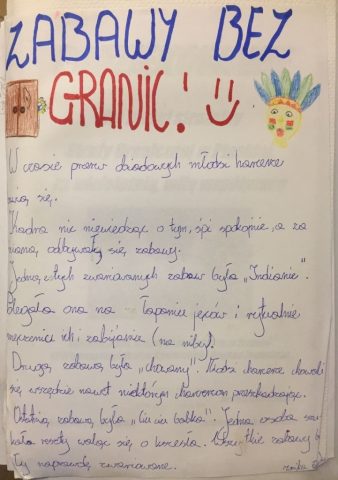 ZABAWY BEZ
GRANIC! :)
W czasie przerw obiadowych młodsi harcerze
się.
Kadra nic niewiedząc o tym, śpi spokojnie, a za
ścianą odbywały się zabawy.
Jedną z tych zwariowanych zabaw była „Indianie".
Polegała ona na łapaniu jeńców i rytualnie
męczenie ich i zabijanie (na niby).
Drugą zabawą były „chowany". Młodsi harcerze chowali
się wszędzie nawet niektórym harcerzom przeszkadzając.
Ostatnią zabawą była "ciuciu babka". Jedna osoba szu-
kała reszty waląc się o krzesła. Wszystkie zabawy by-
ły naprawdę zwariowane.